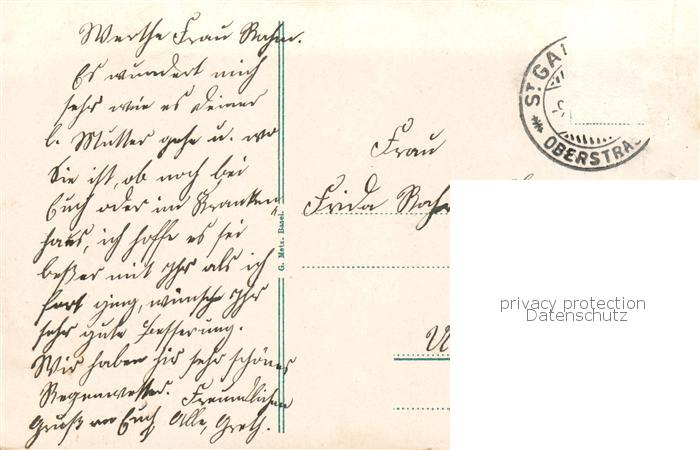 Werthe Frau Rahm.
Es wundert mich
sehr wie es deiner
l. Mutter gehe u. wo
Sie ist, ob noch bei
Euch oder im Kranken
haus, ich hoffe es sei
beßer mit Ihr als ich
fort ging, wünsche Ihr
sehr gute Besserung.
Wir haben hir sehr schönes
Regenwetter. Freundlichen
Gruß an Euch Alle, Greth.
G. Metz, Basel.
Frau
Frida Rahm
ST. GAL
OBERSTRAS
privacy protection
Datenschutz